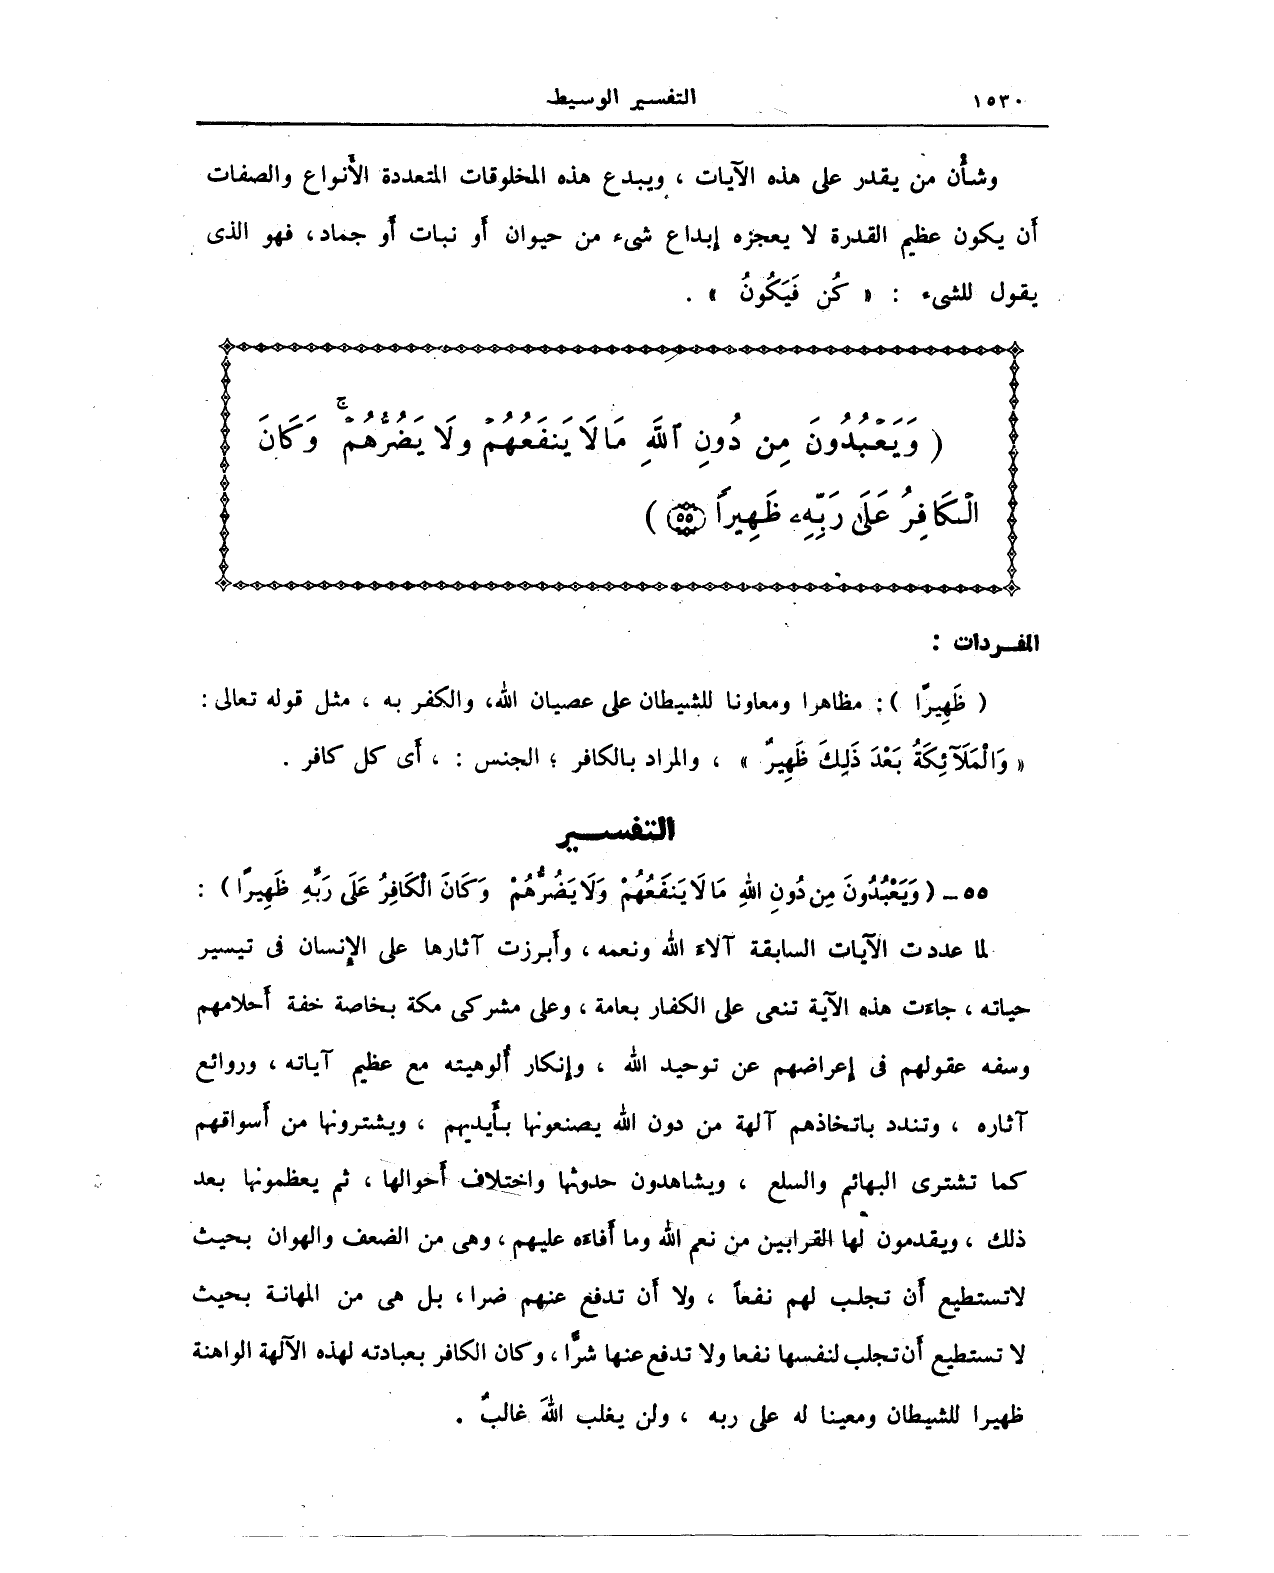 ١٥٣٠ التفسير الوسيط
وشأْن من يقدر على هذه الآيات ، ويبدع هذه المخلوقات المتعددة الأَنواع والصفات
أَن يكون عظيم القدرة لا يعجزه إبداع شىء من حيوان أَو نبات أَو جماد، فهو الذى
يقول للشىء : « كُن فَيَكُونُ » .
( وَيَعْبُدُونَ مِن دُونِ ٱللَّهِ مَا لَا يَنفَعُهُمْ وَلَا يَضُرُّهُمْ ۚ وَكَانَ
الْكَافِرُ عَلَىٰ رَبِّهِۦ ظَهِيرًا ۝٥٥ )
المفـردات :
( ظَهِيرًا ) : مظاهرا ومعاونا للشيطان على عصيان الله، والكفر به ، مثل قوله تعالى :
« وَالْمَلَآئِكَةُ بَعْدَ ذَلِكَ ظَهِيرٌ » ، والمراد بالكافر ؛ الجنس : ، أَى كل كافر .
التفسـير
٥٥ ـ ( وَيَعْبُدُونَ مِن دُونِ اللهِ مَا لَا يَنفَعُهُمْ وَلَا يَضُرُّهُمْ وَكَانَ الْكَافِرُ عَلَى رَبِّهِ ظَهِيرًا ) :
لما عددت الآيات السابقة آلاءَ الله ونعمه ، وأَبرزت آثارها على الإِنسان فى تيسير
حياته ، جاءَت هذه الآية تنعى على الكفار بعامة ، وعلى مشركى مكة بخاصة خفة أَحلامهم
وسفه عقولهم فى إعراضهم عن توحيد الله ، وإنكار أُلوهيته مع عظيم آياته ، وروائع
آثاره ، وتندد باتخاذهم آلهة من دون الله يصنعونها بأَيديهم ، ويشترونها من أَسواقهم
كما تشترى البهائم والسلع ، ويشاهدون حدوثها واختلاف أَحوالها ، ثم يعظمونها بعد
ذلك ، ويقدمون لها القرابين من نعم الله وما أَفاءَه عليهم ، وهى من الضعف والهوان بحيث
لاتستطيع أَن تجلب لهم نفعاً ، ولا أَن تدفع عنهم ضرا ، بل هى من المهانة بحيث
لا تستطيع أَن تجلب لنفسها نفعا ولا تدفع عنها شرًّا ، وكان الكافر بعبادته لهذه الآلهة الواهنة
ظهيرا للشيطان ومعينا له على ربه ، ولن يغلب اللهَ غالبٌ .